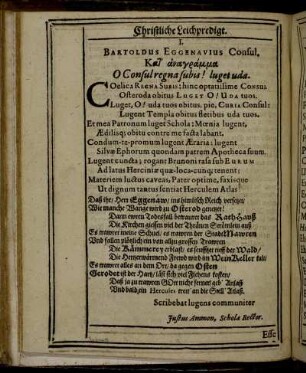 Christliche Leichpredigt.
I.
BARTOLDUS EGGENAVIUS Consul,
Κατ᾽ ἀναγράμμα
O Consul regna subis! luget uda.
COelica REGNA SUBIS: hinc optatissime CONSUL
Osteroda obitus LUGET O! UDA tuos.
Luget, O! uda tuos obitus, pie, CURIA Consul:
Lugent Templa obitus fletibus uda tuos.
Et mea Patronum luget Schola: Mœnia lugent,
Ædiliq; obitu contre me facta labant.
Condum-te-promum lugent Æraria: lugent
Silvæ Ephorum quondam patrem Apotheca suum.
Lugent cuncta; rogant Brunoni rasa sub EURUM
Ad latus Herciniæ quæ-loca-cunq; tenent;
Materiem luctus caveas, Pater optime, faxisque
Ut dignum tantus sentiat Herculeni Atlas!
Daß ihr, Herr Eggenaw, ins himlisch Reich versetzet
Wie manche Wange wird zu Osterod genetzet!
Darin ewren Todesfall betrawret das Rath-Hauß
Die Kirchen giessen viel der Thränen Strömlein auß
Es trawret meine Schul; es trawren der Stadt Mawren
Und fallen plötzlich ein von allzu grossen Trawren
Die Kämmerey erblast; es seufftzet auß der Wald/
Die Hertzerwärmend Frewd wird im Wein Keller kalt
Es trawret alles an dem Ort, da gegen Osten
Gerodet ist der Hart/ läst sich viel Flehens kosten/
Daß ja zu trawren GOtt nicht ferner geb' Anlaß
Und bald ein Hercules tret' an die Stell' Atlaß.
Scribebat lugens communiter
Justus Ammon, Scholæ Rector.
Eiße